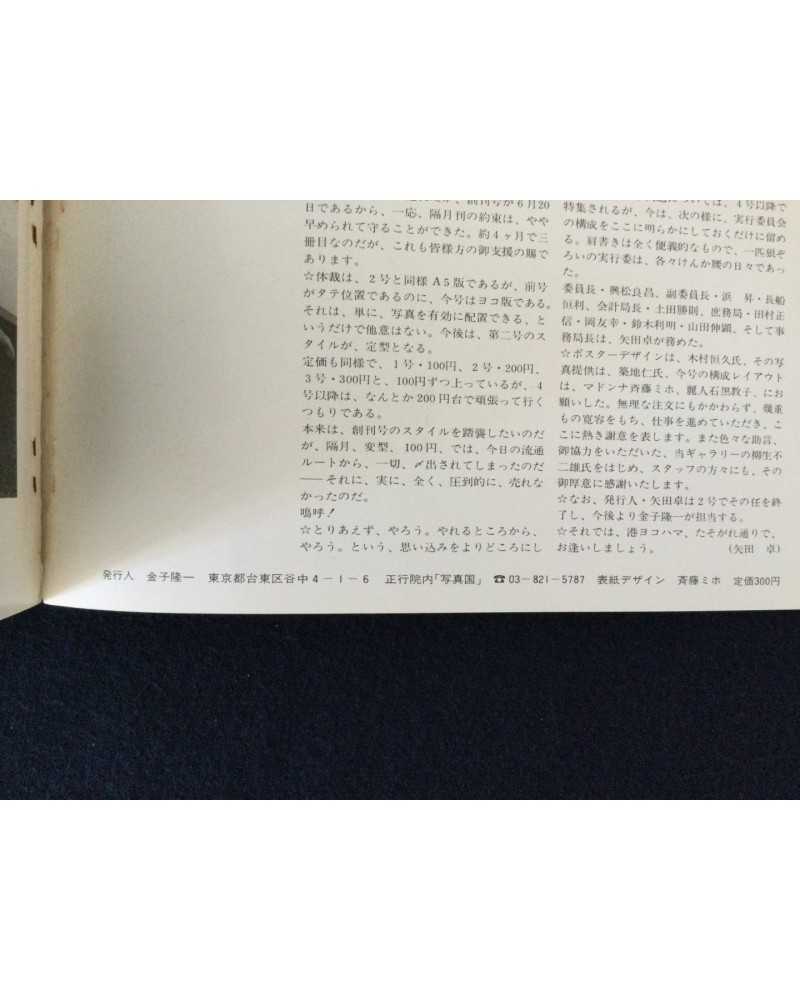 創刊号が6月20
日であるから、一応、隔月刊の約束は、やや
早められて守ることができた。約4ヶ月で三
冊目なのだが、これも皆様方の御支援の賜で
あります。
☆体裁は、2号と同様A5版であるが、前号
がタテ位置であるのに、今号はヨコ版である。
それは、単に、写真を有効に配置できる、と
いうだけで他意はない。今後は、第二号のス
タイルが、定型となる。
定価も同様で、1号・100円、2号・200円、
3号・300円と、100円ずつ上っているが、4
号以降は、なんとか200円台で頑張って行く
つもりである。
本来は、創刊号のスタイルを踏襲したいのだ
が、隔月、変型、100円、では、今日の流通
ルートから、一切、〆出されてしまったのだ
——それに、実に、全く、圧到的に、売れな
かったのだ。
嗚呼!
☆とりあえず、やろう。やれるところから、
やろう。という、思い込みをよりどころにし
ついては、4号以降で
特集されるが、今は、次の様に、実行委員会
の構成をここに明らかにしておくだけに留め
る。肩書きは全く便義的なもので、一匹狼ぞ
ろいの実行委は、各々けんか腰の日々であっ
た。
委員長・興松良昌、副委員長・浜　昇・長船
恒利、会計局長・土田勝則、庶務局・田村正
信・岡友幸・鈴木利明・山田伸顕、そして事
務局長は、矢田卓が務めた。
☆ポスターデザインは、木村恒久氏、その写
真提供は、築地仁氏、今号の構成レイアウト
は、マドンナ斉藤ミホ、麗人石黒敦子、にお
願いした。無理な注文にもかかわらず、幾重
もの寛容をもち、仕事を進めていただき、こ
こに熱き謝意を表します。また色々な助言、
御協力をいただいた、当ギャラリーの柳生不
二雄氏をはじめ、スタッフの方々にも、その
御厚意に感謝いたします。
☆なお、発行人・矢田卓は2号でその任を終
了し、今後より金子隆一が担当する。
☆それでは、港ヨコハマ、たそがれ通りで、
お逢いしましょう。　（矢田　卓）
発行人　金子隆一　東京都台東区谷中4－1－6　正行院内「写真国」　☎03－821－5787　表紙デザイン　斉藤ミホ　定価300円